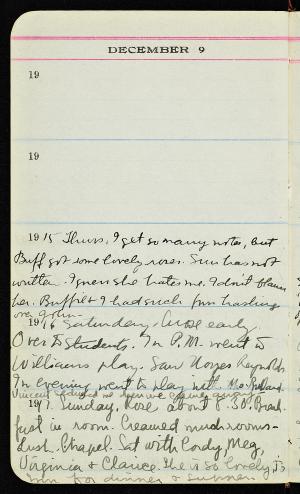 DECEMBER 9
19
19
1915 Thurs, I get so many notes, but
Buff got some lovely roses. Sun has not
written. I guess she hates me. I don't blame
her. Buff & I had such fun hashing
over
1916 Saturday. Arose early.
Over to students. In P.M. went to
Williams play. Saw Noyes Reynolds
In evening went to play with Mrs.
Vincent
1917. Sunday. Rose about 8:30. Break-
fast in room. Creamed mushrooms.
Lush. Chapel. Sat with Cordy, Meg,
Virginia & Clarice. She is so lovely. Is
for dinner & summer